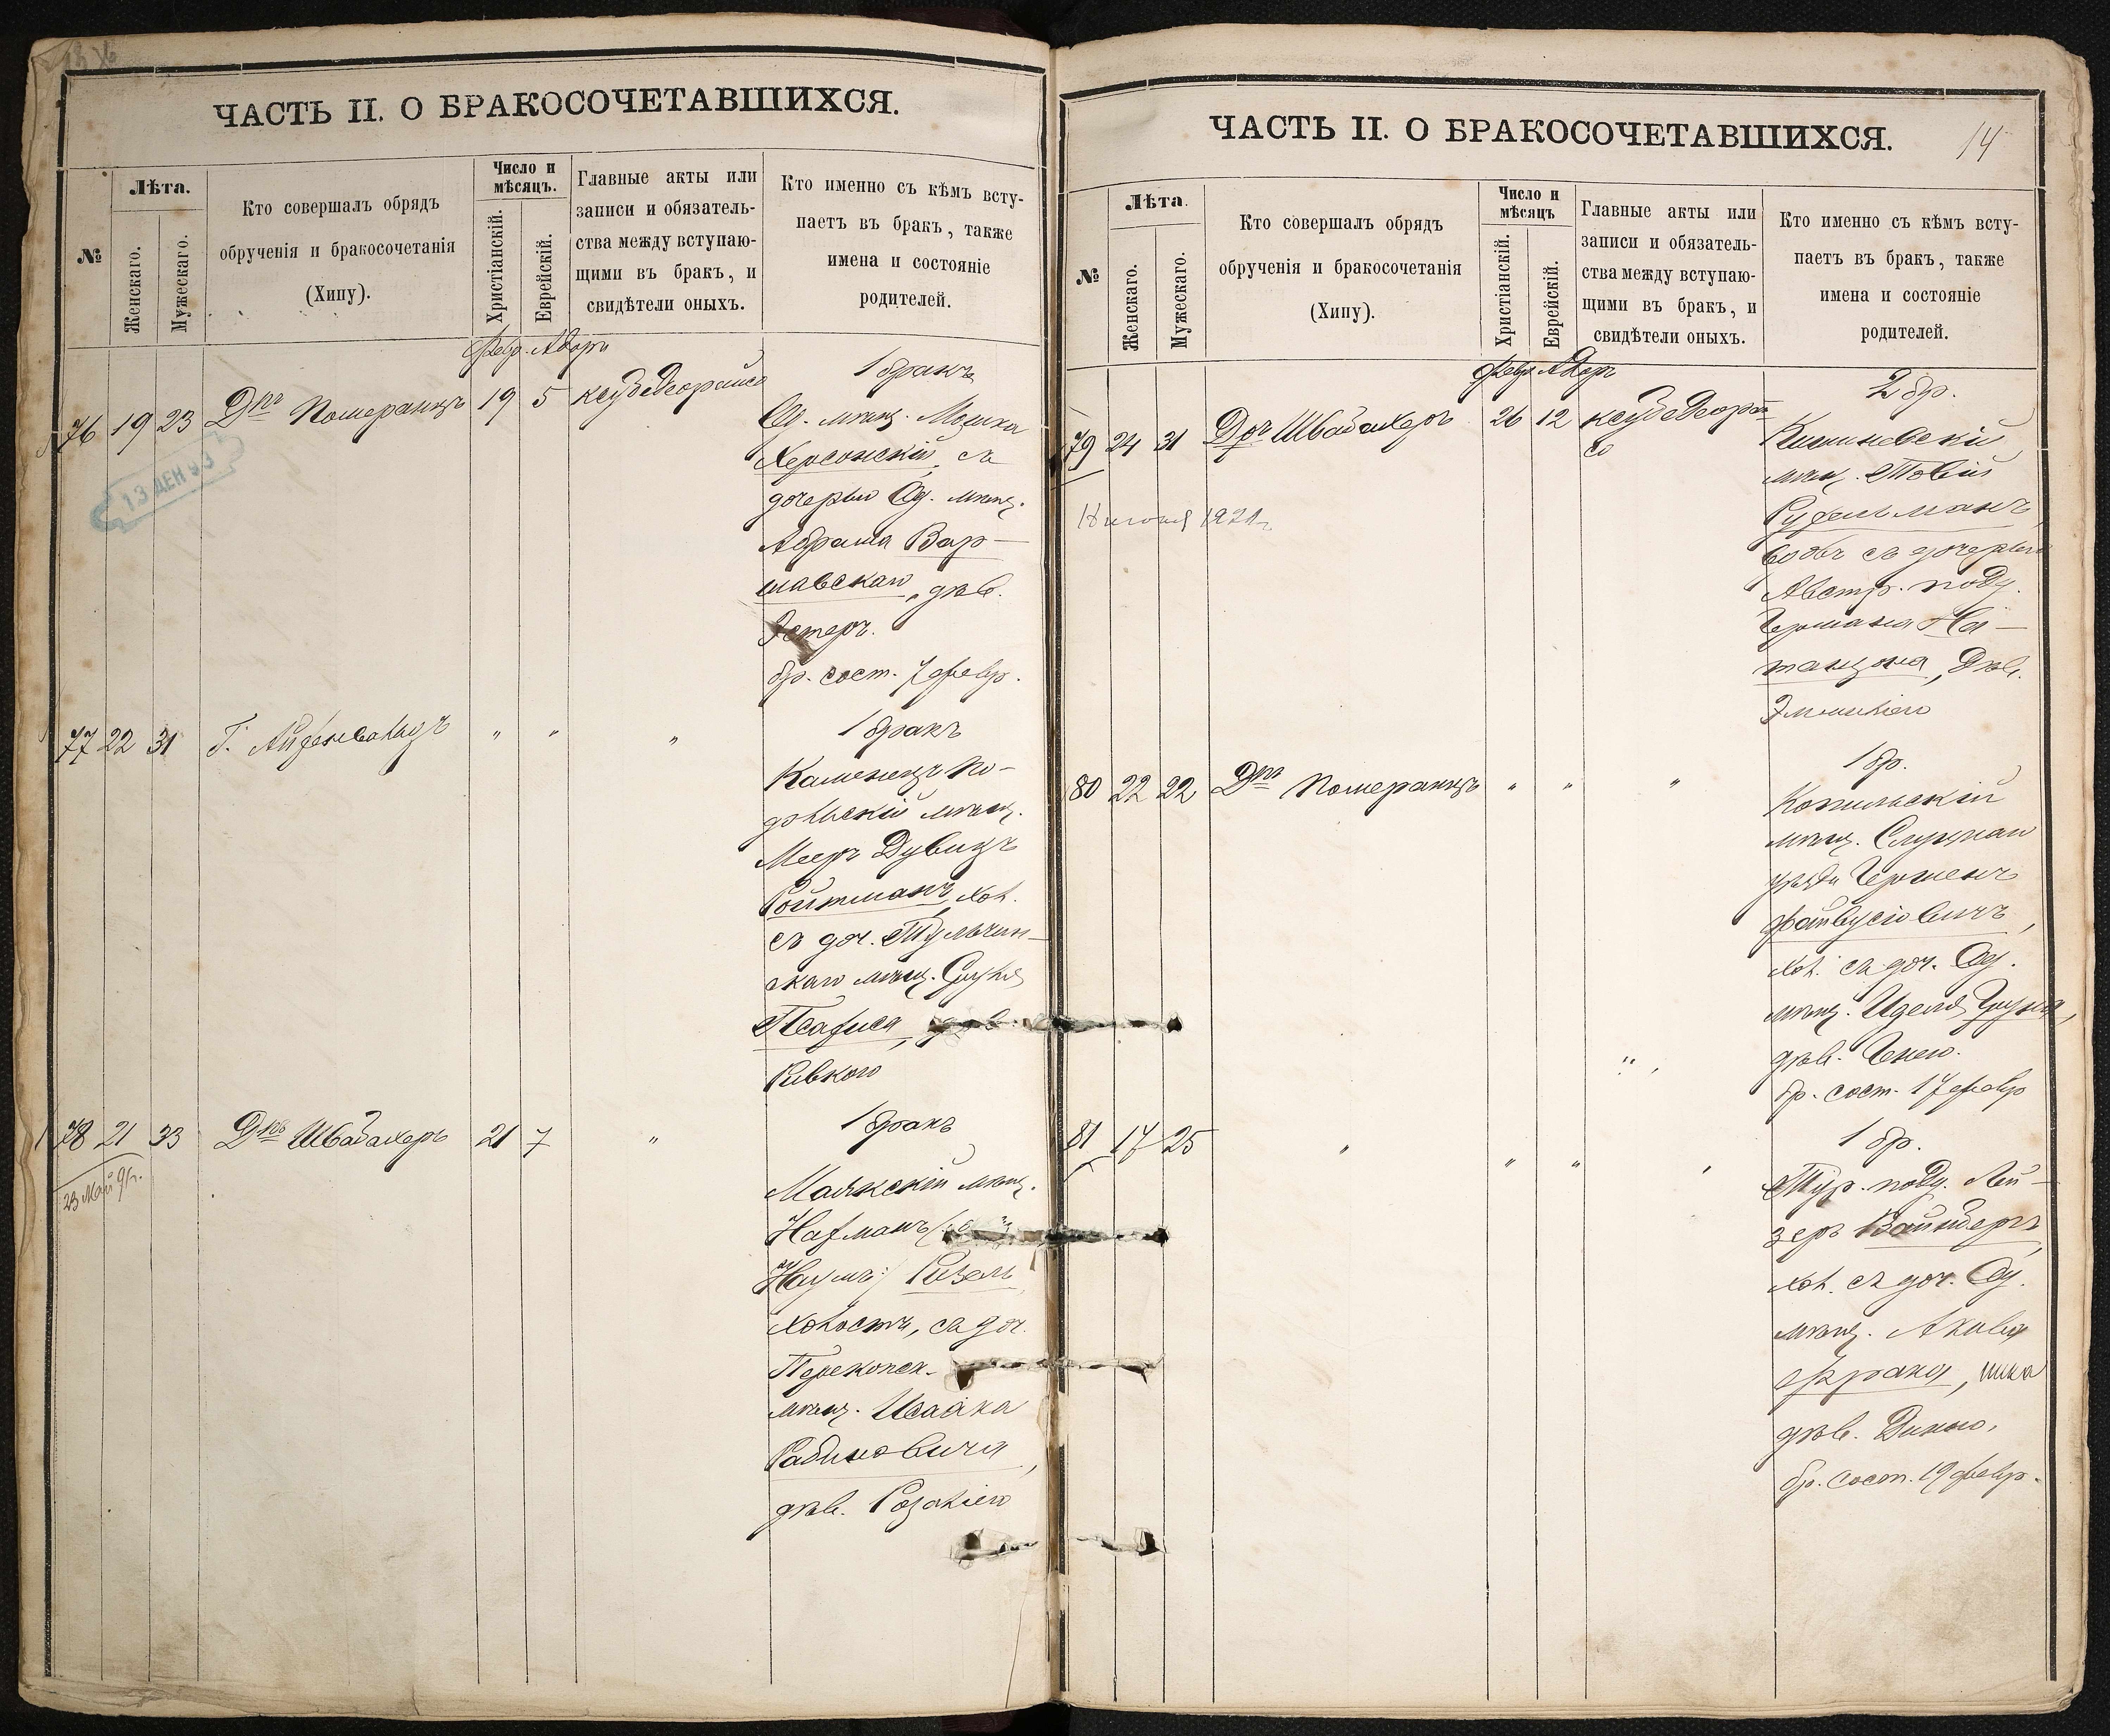 ЧАСТЬ II. О БРАКОСОЧЕТАВШИХСЯ.
№
Лѣта.
Женскаго.
Мужескаго.
Кто совершалъ обрядъ
обрученія и бракосочетанія
(Хипу).
Число и
мѣсяцъ.
Христіанскій.
Еврейскій.
Главные акты или
записи и обязатель-
ства между вступаю-
щими въ бракъ, и
свидѣтели оныхъ.
Кто именно съ кѣмъ всту-
паетъ въ бракъ, также
имена и состояніе
родителей.
Февр. Адаръ
76 19 23 Дръ Померанцъ 19 5
1 бракъ
Од. мѣщ. Мошка
Херсонскій, съ
дочерью Од. мѣщ.
Абрама Вар-
шавскаго, дѣв.
Эстеръ.
бр. сост. 7 февр.
77 22 31 Г. " " "
1 бракъ
Каменецъ По-
дольскій мѣщ.
Мееръ Дувидъ
Ройтманъ, хол.
съ доч. Тульчин-
скаго мѣщ.
дѣв.
Ривкою
78 21 33 Дръ Швабахеръ 21 7 "
23 Май 91г.
1 бракъ
Маякскій мѣщ.
Нахманъ
Наумъ) Ризель
холостъ, съ доч.
Перекопск.
мѣщ. Исаака
Рабиновича,
дѣв. Розалією
ЧАСТЬ II. О БРАКОСОЧЕТАВШИХСЯ.
14
№
Лѣта.
Женскаго.
Мужескаго.
Кто совершалъ обрядъ
обрученія и бракосочетанія
(Хипу).
Число и
мѣсяцъ
Христіанскій.
Еврейскій.
Главные акты или
записи и обязатель-
ства между вступаю-
щими въ бракъ, и
свидѣтели оныхъ.
Кто именно съ кѣмъ всту-
паетъ въ бракъ, также
имена и состояніе
родителей.
Февр. Адаръ
79 24 31 Дръ Швабахеръ 26 12
2 бр.
Кишиневскій
мѣщ. Товій
вдовъ съ дочерью
Австр. подд.
Германа На-
тансона, Дѣв.
Эмилією
80 22 22 Дръ Померанцъ " " "
1 бр.
Копыльскій
мѣщ. Слуцкаго
уѣзда
Файвусіовичъ,
хол. съ доч. Од.
мѣщ. Иделя
дѣв. Генею.
бр. сост. 17 февр
81 17 25 " " " "
1 бр.
Тур. подд. Лей-
зеръ Вайнбергъ,
хол. съ доч. Од.
мѣщ. Акивы
дѣв. Диною,
бр. сост. 19 февр.